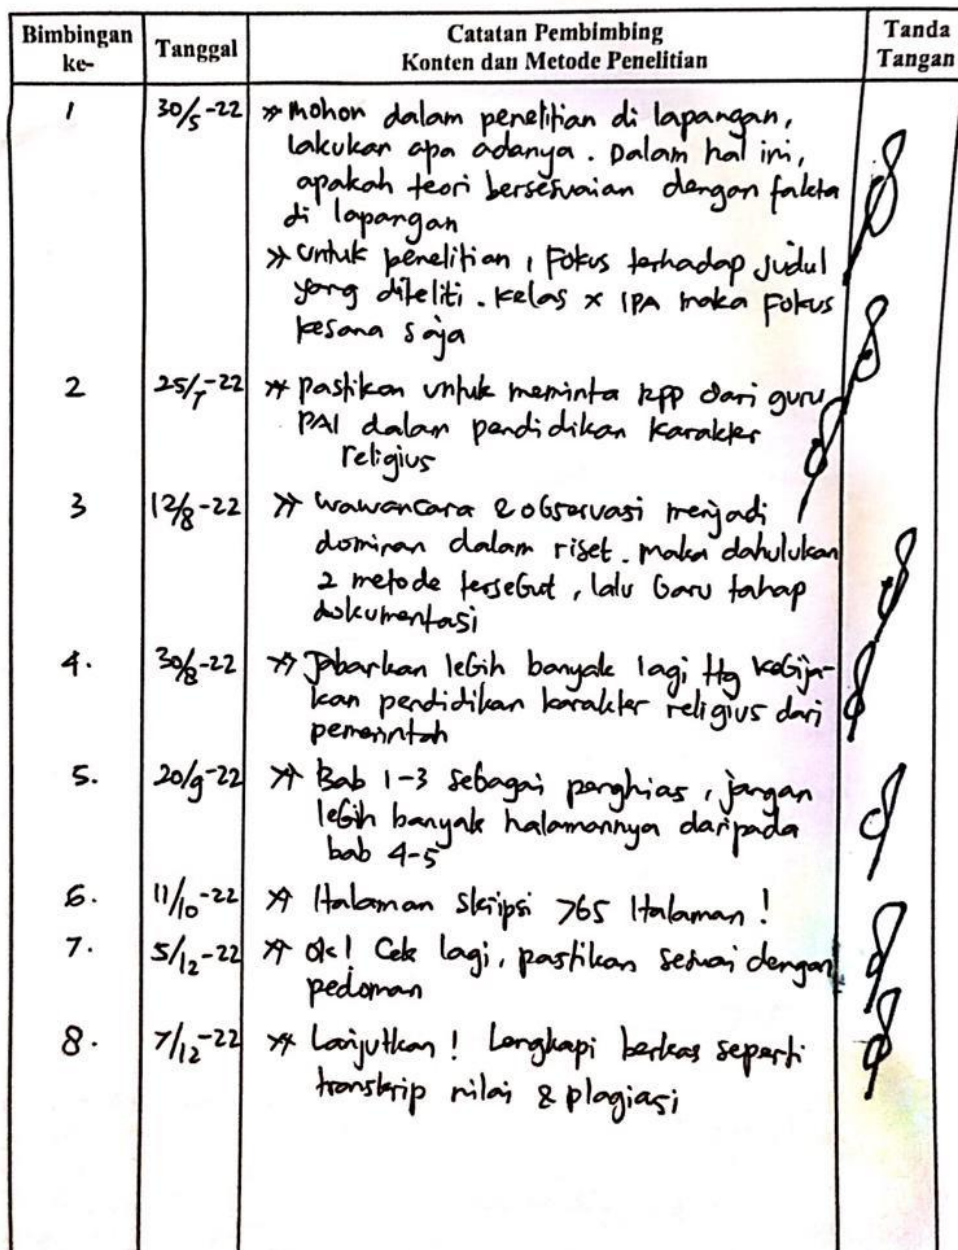 Bimbingan ke-
Tanggal
Catatan Pembimbing
Konten dan Metode Penelitian
Tanda Tangan
1 30/5-22 » Mohon dalam penelitian di lapangan,
lakukan apa adanya. Dalam hal ini,
apakah teori bersesuaian dengan fakta
di lapangan
» Untuk penelitian, Fokus terhadap judul
yang diteliti. Kelas X IPA maka Fokus
kesana saja
2 25/7-22 » Pastikan untuk meminta RPP dari guru
PAI dalam pendidikan karakter
religius
3 12/8-22 » Wawancara & observasi menjadi
dominan dalam riset. Maka dahulukan
2 metode tersebut, lalu baru tahap
dokumentasi
4. 30/8-22 » Jabarkan lebih banyak lagi ttg kebija-
kan pendidikan karakter religius dari
pemerintah
5. 20/9-22 » Bab 1-3 sebagai penghias, jangan
lebih banyak halamannya daripada
bab 4-5
6. 11/10-22 » Halaman Skripsi >65 Halaman!
7. 5/12-22 » Ok! Cek lagi, pastikan sesuai dengan
pedoman
8. 7/12-22 » Lanjutkan! Lengkapi berkas seperti
transkrip nilai & plagiasi